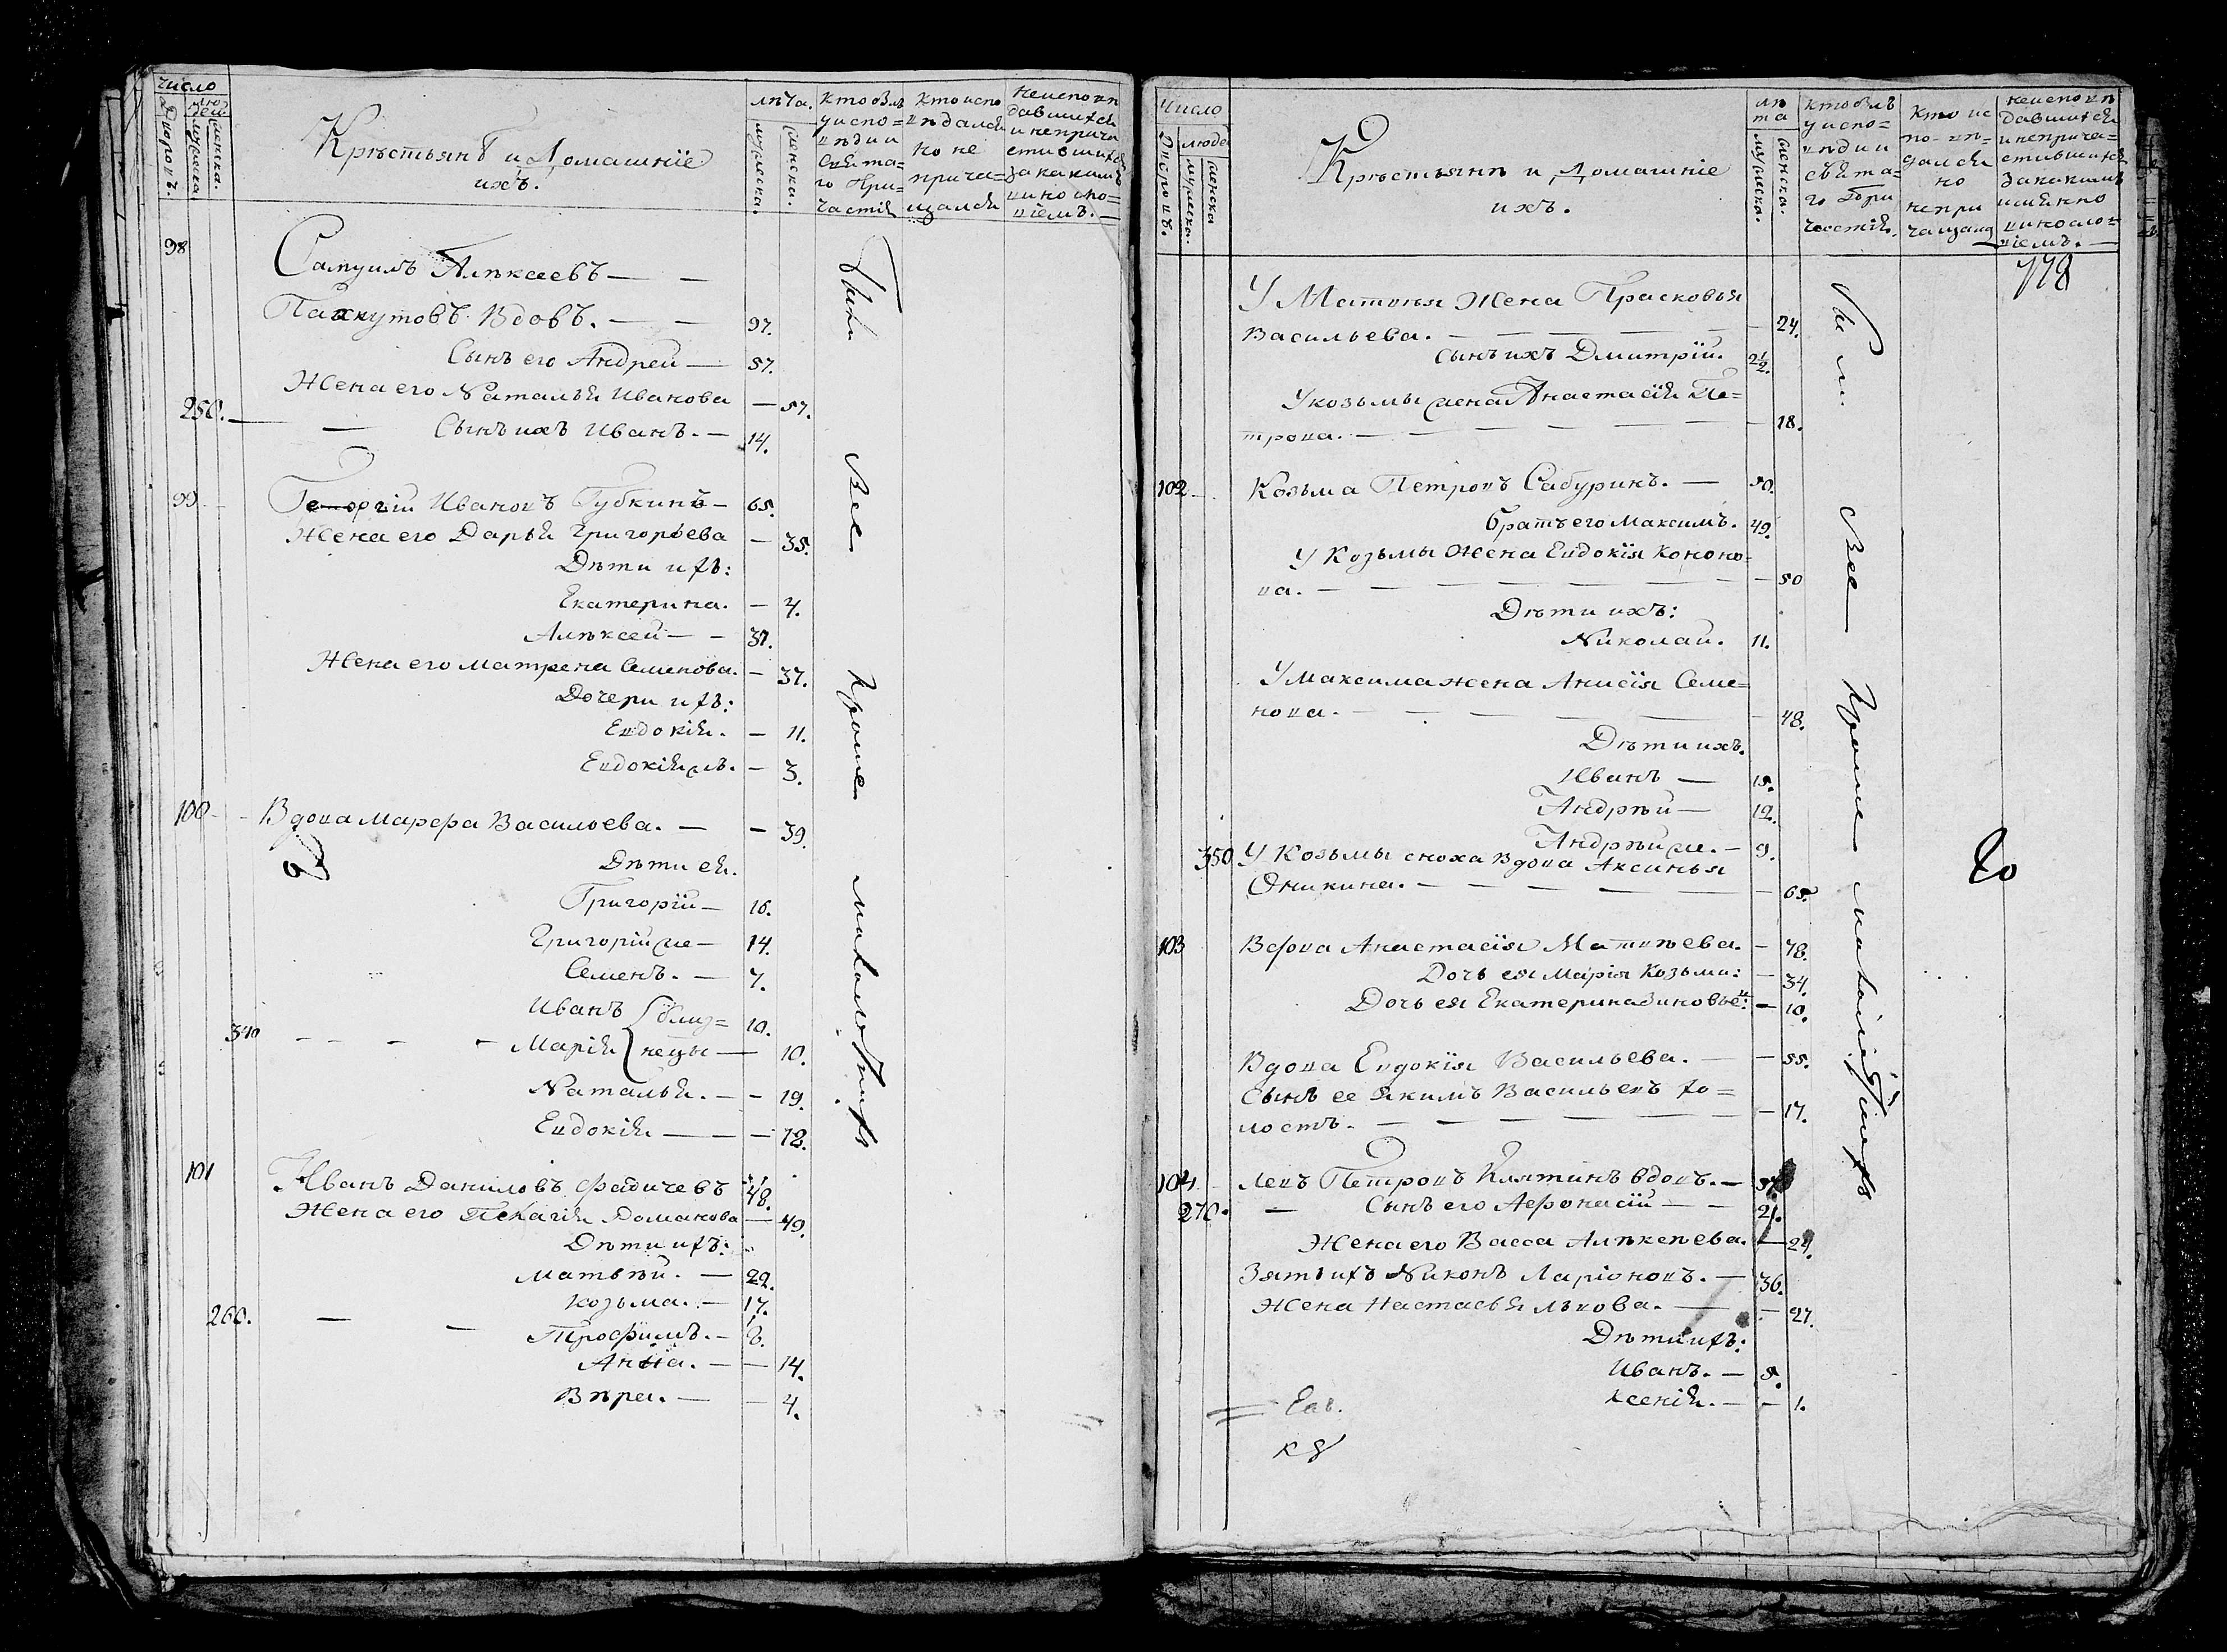 Число
Дворовъ.
людей
мужеска.
женска.
Крестьянѣ и Домашніе
ихъ.
лѣта.
мужеска.
женска.
Кто былъ
у испо=
вѣди и
свята=
го При=
частія
Кто испо
вѣдался
но не
прича=
щался
Неисповѣ
давшихся
и неприча
стившихся
за какимъ
винословіемъ.
98
Самуилъ Алѣксеевъ — —
Пахнутовъ Вдовъ. — — 97.
Сынъ его Андрей — 57.
Жена его Наталья Иванова — 57.
250. — — Сынъ ихъ Иванъ. — 14.
99 Георгій Ивановъ Губкинъ — 65.
Жена его Дарья Григорьева — 35.
Дѣти ихъ:
Екатерина. — 4.
Алѣксей — — 37.
Жена его Матрена Семенова. — 37.
Дочери ихъ:
Евдокія. — 11.
Евдокія жъ. — 3.
100 Вдова Марѳа Васильева. — — 39.
Дѣти ея.
Григорій — 16.
Григорій же — 14.
Семенъ. — 7.
Иванъ близ= 10.
340 — — — Марія нецы — 10.
Наталья. — — 19.
Евдокія — — — 12.
101 Иванъ Даниловъ Фадичевъ 48.
Жена его Пелагія Романова — 49.
Дѣти ихъ:
Матвѣй. — 22.
Козьма. — 17.
260. — — Трофимъ. — 8.
Анна. — — 14.
Вѣра. — — 4.
Были Все Кроме малолѣтнихъ
Число
Дворовъ.
людей
мужеска.
женска
Крестьянѣ и Домашніе
ихъ.
лѣта
мужеска.
женска.
Кто былъ
у испо=
вѣди и
свята=
го При
частія.
Кто ис
по-вѣ=
дался
но
непри
чащался
Неисповѣ
давшихся
и неприча=
стившихся
за какимъ
имянно
винослов=
віемъ.
778
У Матвѣя Жена Прасковья
Васильева. — — — — 24.
Сынъ ихъ Дмитрій. 2½.
У Козьмы жена Анастасія Пе=
трова. — — — — 18.
102 Козьма Петровъ Сабуринъ. — 50.
братъ его Максимъ. 49.
У Козьмы Жена Евдокія Кононо=
ва. — — — — — 50
Дѣти ихъ:
Николай. 11.
У Максима жена Анисія Семе=
нова. — — — — 48.
Дѣти ихъ.
Иванъ — 15.
Андрѣй — 12.
Андрѣй же. — 9.
350 У Козьмы сноха вдова Аксинья
Оникина. — — — — 65.
103 Вдова Анастасія Матвѣева. — 78.
Дочь ея Марія Козьми: — 34.
Дочь ея Екатерина Зиновье: — 10.
Вдова Евдокія Васильева. — — 55.
Сынъ ее Якимъ Васильевъ хо=
лостъ. — — — — 17.
104 Левъ Петровъ Клятинъ вдовъ. —
270. — Сынъ его Аѳонасій — — 21.
Жена его Васса Алѣксѣева. — 24.
Зять ихъ Никонъ Ларіоновъ. — 36.
Жена Настасья Львова. — — 27.
Дѣти ихъ:
Иванъ. — 8.
Ксенія. — — 1.
Были Все Кроме малолѣтнихъ